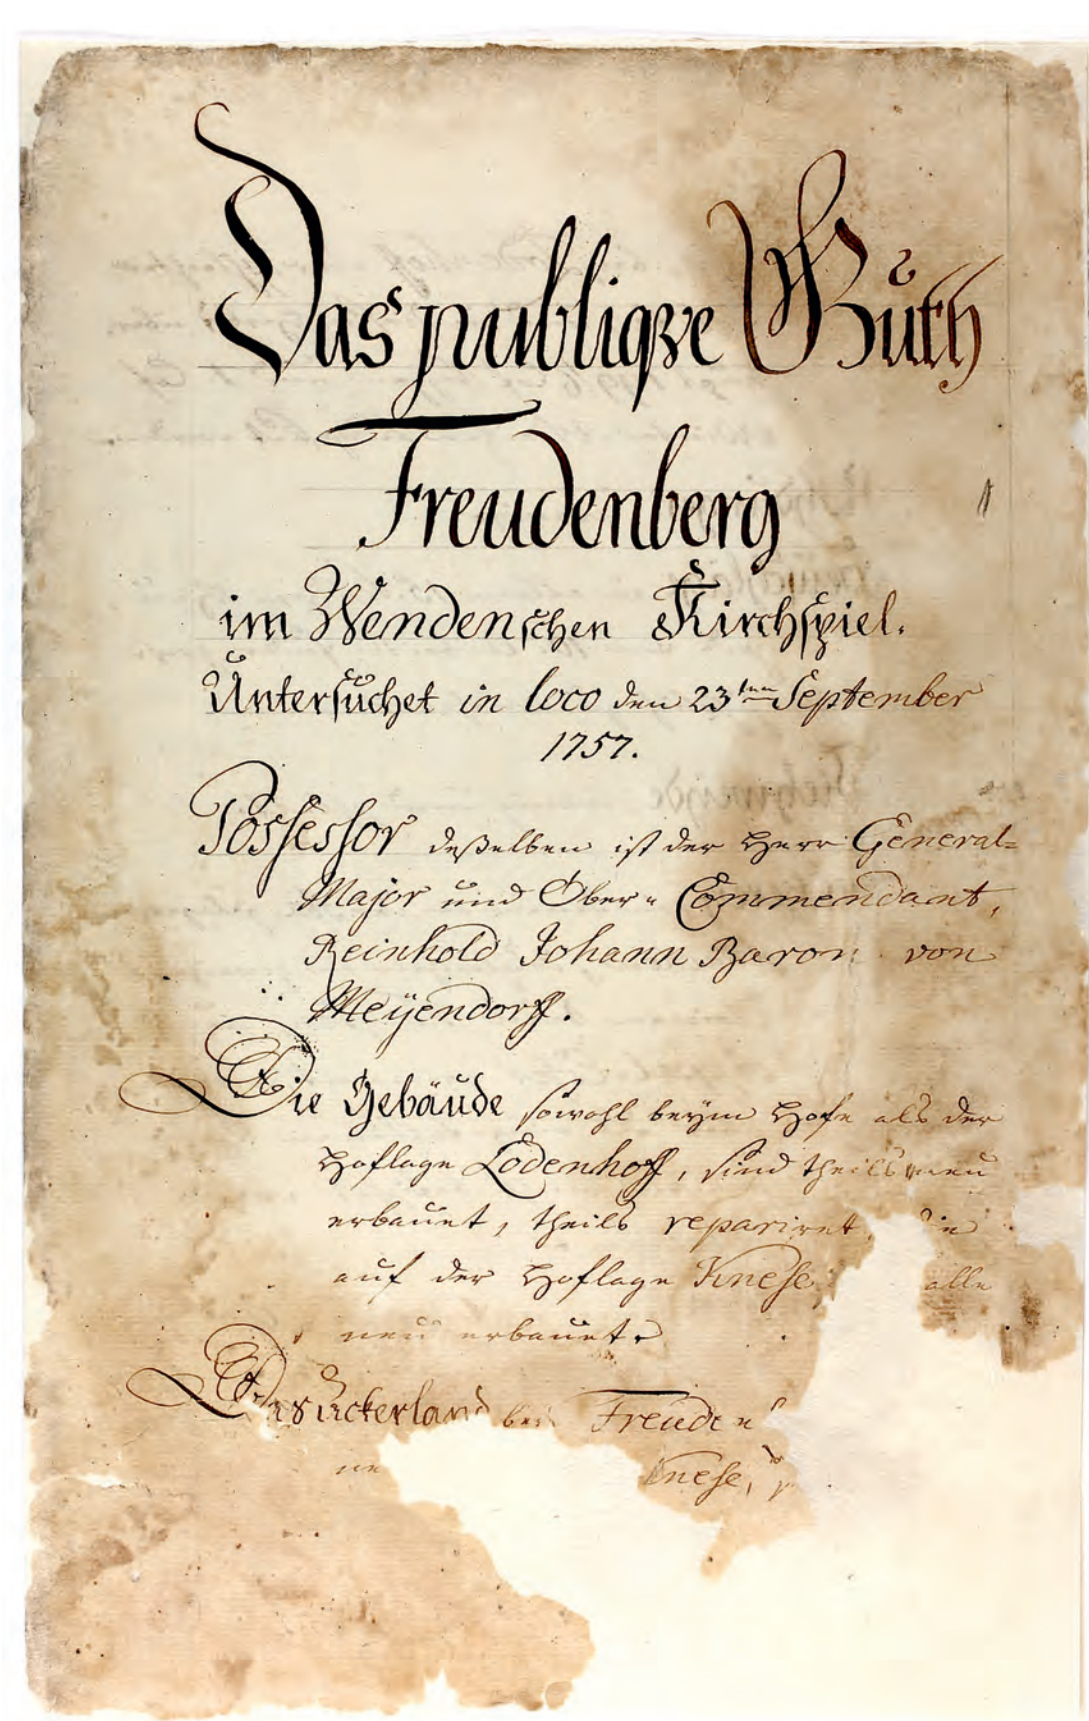 Das publique Guth
Freudenberg
im Wendenschen Kirchspiel.
Untersuchet in loco den 23ten September
1757.
Possessor deßelben ist der Herr General-
Major und Ober- Commendant,
Reinhold Johann Baron von
Meÿendorff.
Die Gebäude sowohl beÿm Hofe als der
Hoflage Lodenhoff, sind theils neu
erbauet, theils repariret, die
auf der Hoflage Knese alle
neu erbauet.
Das Ackerland bei Freuden
ne Knese,